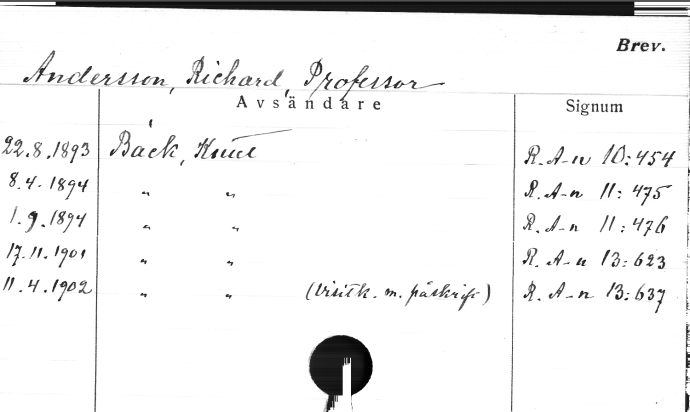 Brev.
Andersson, Richard, Professor
Avsändare Signum
22.8.1893 Bäck, Knut R. A-n 10:454
8.4.1894 " " R. A-n 11:475
1.9.1894 " " R. A-n 11:476
17.11.1901 " " R. A-n 13:623
11.4.1902 " " (Visitk. m. påskrift) R. A-n 13:637